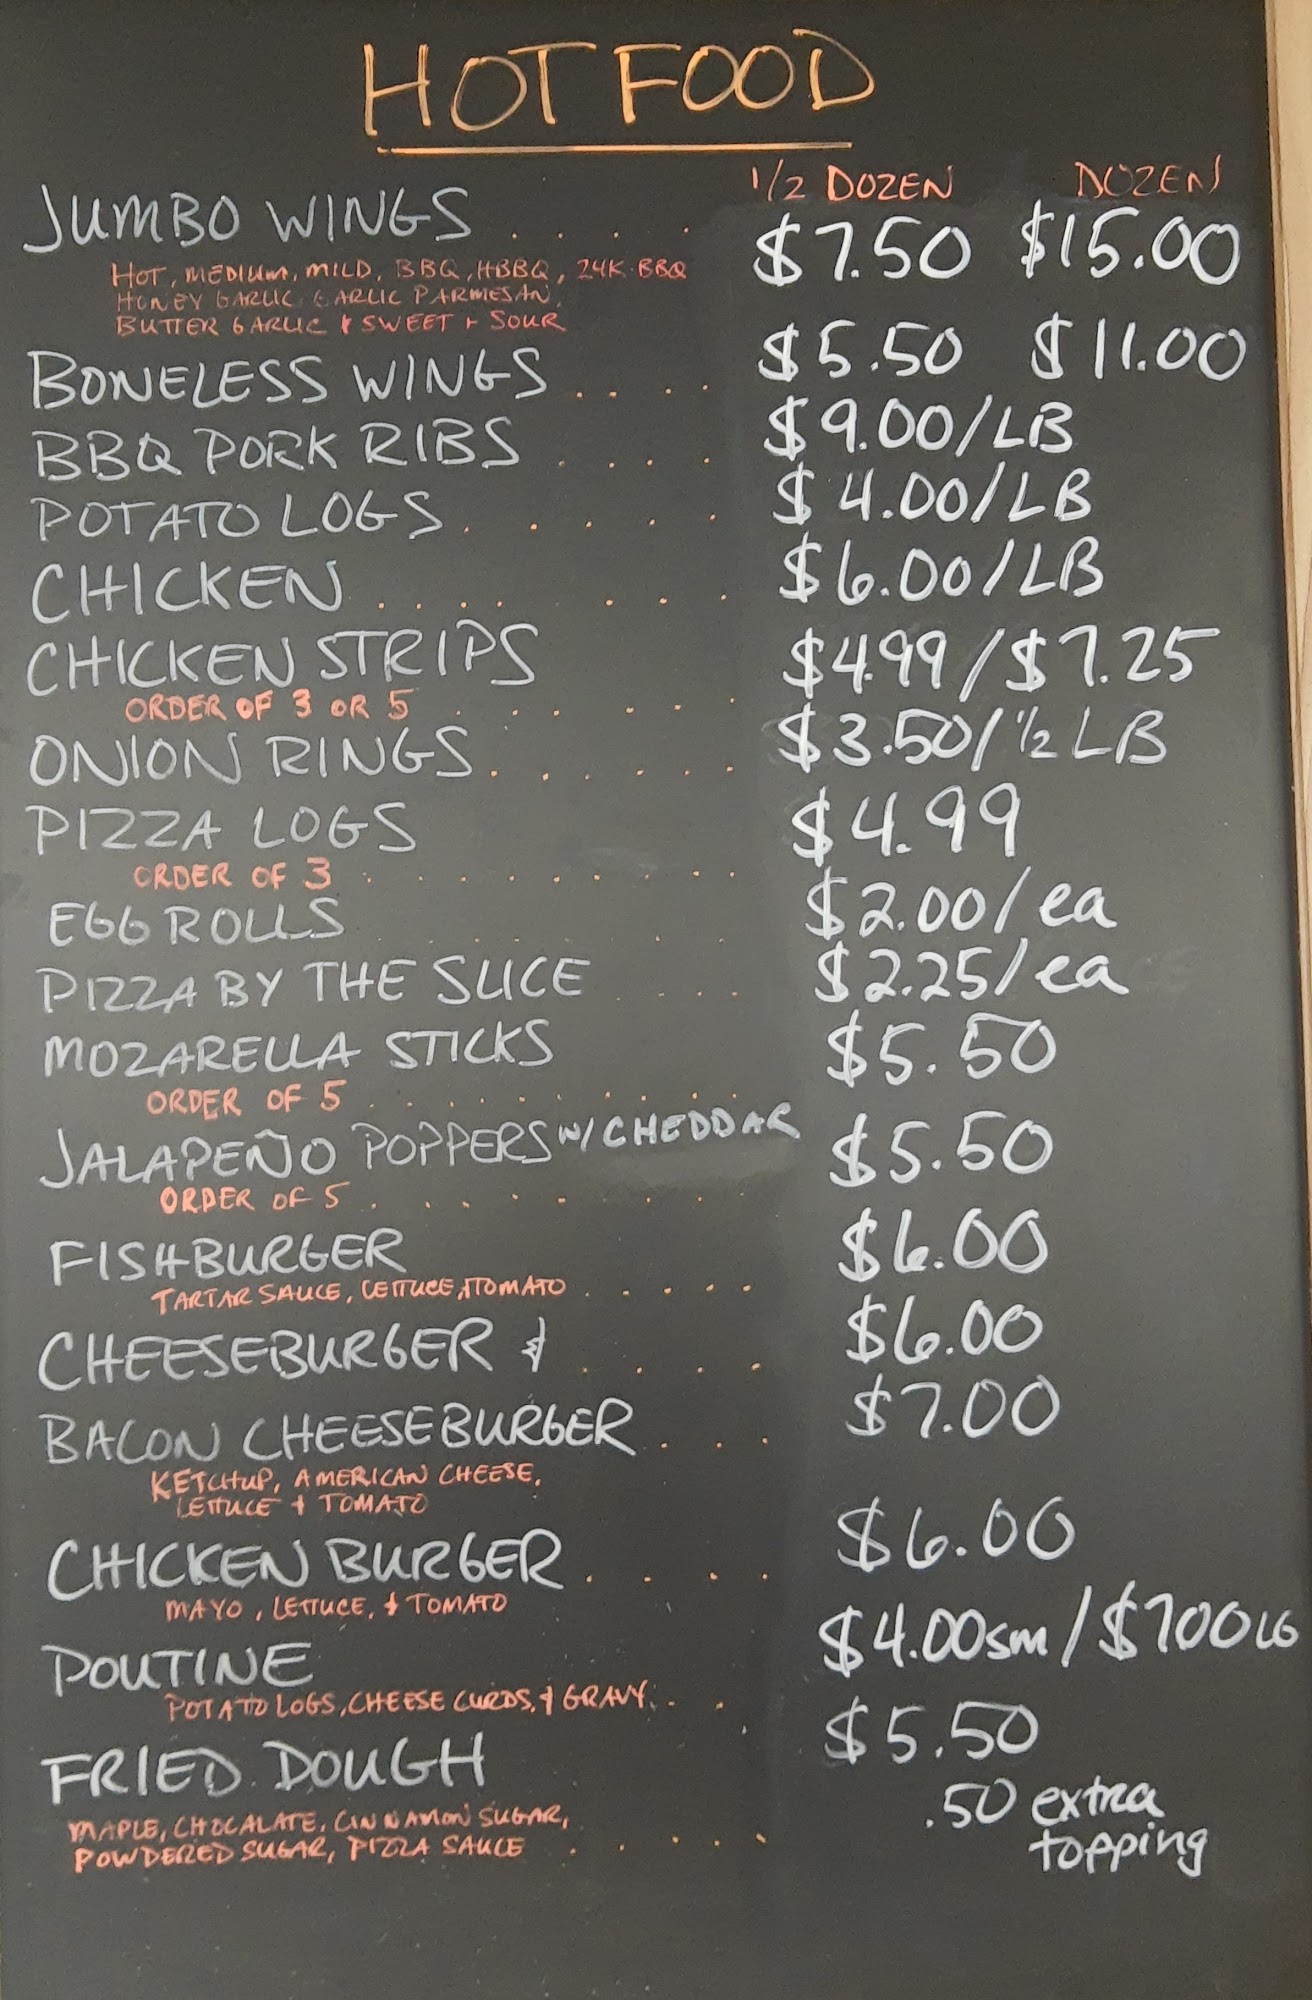 HOT FOOD
1/2 DOZEN DOZEN
JUMBO WINGS . . . . $7.50 $15.00
HOT, MEDIUM, MILD, BBQ, HBBQ, 24K BBQ
HONEY GARLIC, GARLIC PARMESAN,
BUTTER GARLIC & SWEET + SOUR
BONELESS WINGS . . . . $5.50 $11.00
BBQ PORK RIBS . . . . $9.00/LB
POTATO LOGS . . . . . $4.00/LB
CHICKEN . . . . . . . $6.00/LB
CHICKEN STRIPS $4.99/$7.25
ORDER OF 3 OR 5 . . . . . .
ONION RINGS . . . . . . $3.50/½ LB
PIZZA LOGS $4.99
ORDER OF 3 . . . . . . . . .
EGG ROLLS . . . . . . . . $2.00/ea
PIZZA BY THE SLICE . . . . $2.25/ea
MOZARELLA STICKS $5.50
ORDER OF 5 . . . . . . . . .
JALAPEÑO POPPERS W/ CHEDDAR $5.50
ORDER OF 5 . . . . . . . .
FISHBURGER $6.00
TARTAR SAUCE, LETTUCE, TOMATO . . . . .
CHEESEBURGER & . . . . $6.00
BACON CHEESEBURGER . . . $7.00
KETCHUP, AMERICAN CHEESE,
LETTUCE + TOMATO
CHICKEN BURGER . . . . $6.00
MAYO, LETTUCE, & TOMATO
POUTINE $4.00sm/$7.00LG
POTATO LOGS, CHEESE CURDS, & GRAVY . .
FRIED DOUGH $5.50
.50 extra
topping
MAPLE, CHOCALATE, CINNAMON SUGAR,
POWDERED SUGAR, PIZZA SAUCE . . . . .